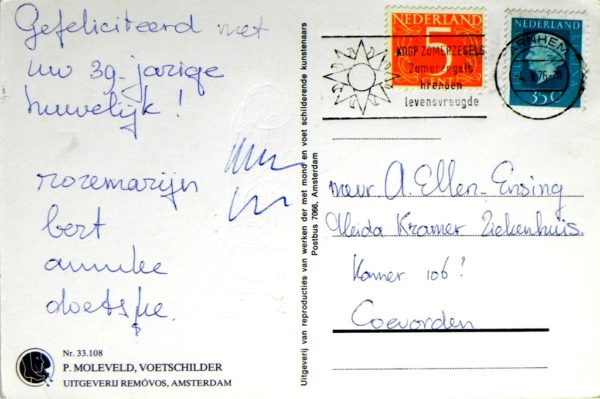 Gefeliciteerd met
uw 39-jarige
huwelijk!
rozemarijn
bert
anneke
doetske.
Nr. 33.108
P. MOLEVELD, VOETSCHILDER
UITGEVERIJ REMÓVOS, AMSTERDAM
Uitgeverij van reproducties van werken der met mond en voet schilderende kunstenaars
Postbus 7066, Amsterdam
NEDERLAND
5
NEDERLAND
35c
KOOP ZOMERZEGELS
Zomerzegels
brengen
levensvreugde
ARNHEM
mevr A. Ellen-Ensing
Aleida Kramer Ziekenhuis.
Kamer 106?
Coevorden